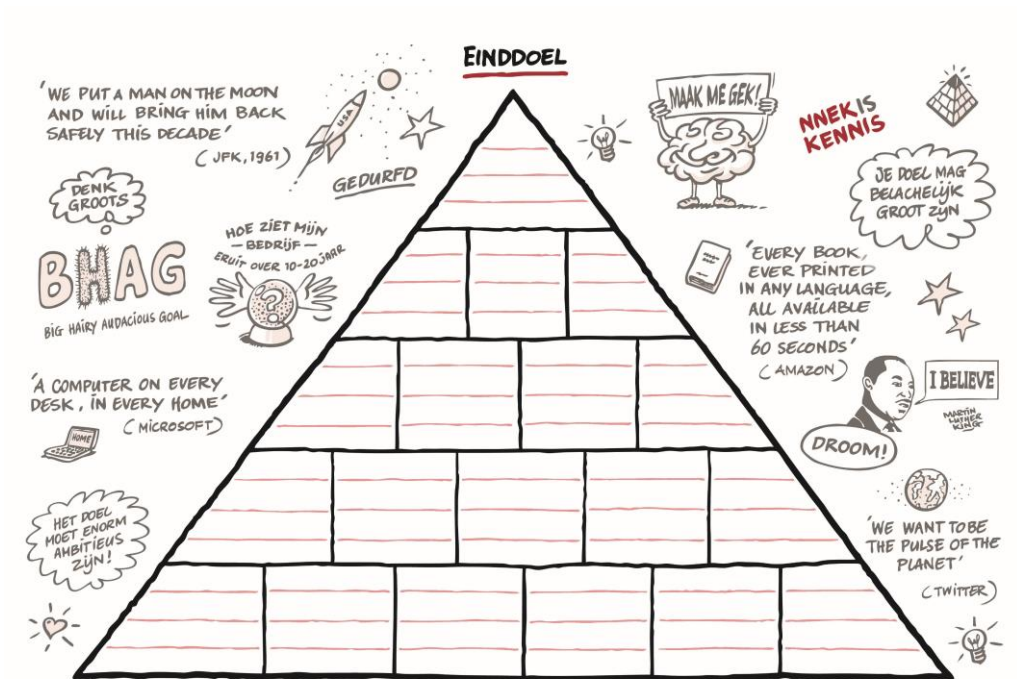 EINDDOEL
'WE PUT A MAN ON THE MOON
AND WILL BRING HIM BACK
SAFELY THIS DECADE'
(JFK, 1961)
USA
GEDURFD
DENK
GROOTS
BHAG
BIG HAIRY AUDACIOUS GOAL
HOE ZIET MIJN
– BEDRIJF –
ERUIT OVER 10-20 JAAR
?
'A COMPUTER ON EVERY
DESK, IN EVERY HOME'
(MICROSOFT)
HOME
HET DOEL
MOET ENORM
AMBITIEUS
ZIJN!
MAAK ME GEK!
NNEK IS
KENNIS
JE DOEL MAG
BELACHELIJK
GROOT ZIJN
'EVERY BOOK,
EVER PRINTED
IN ANY LANGUAGE,
ALL AVAILABLE
IN LESS THAN
60 SECONDS'
(AMAZON)
I BELIEVE
MARTIN
LUTHER
KING
DROOM!
'WE WANT TO BE
THE PULSE OF THE
PLANET'
(TWITTER)